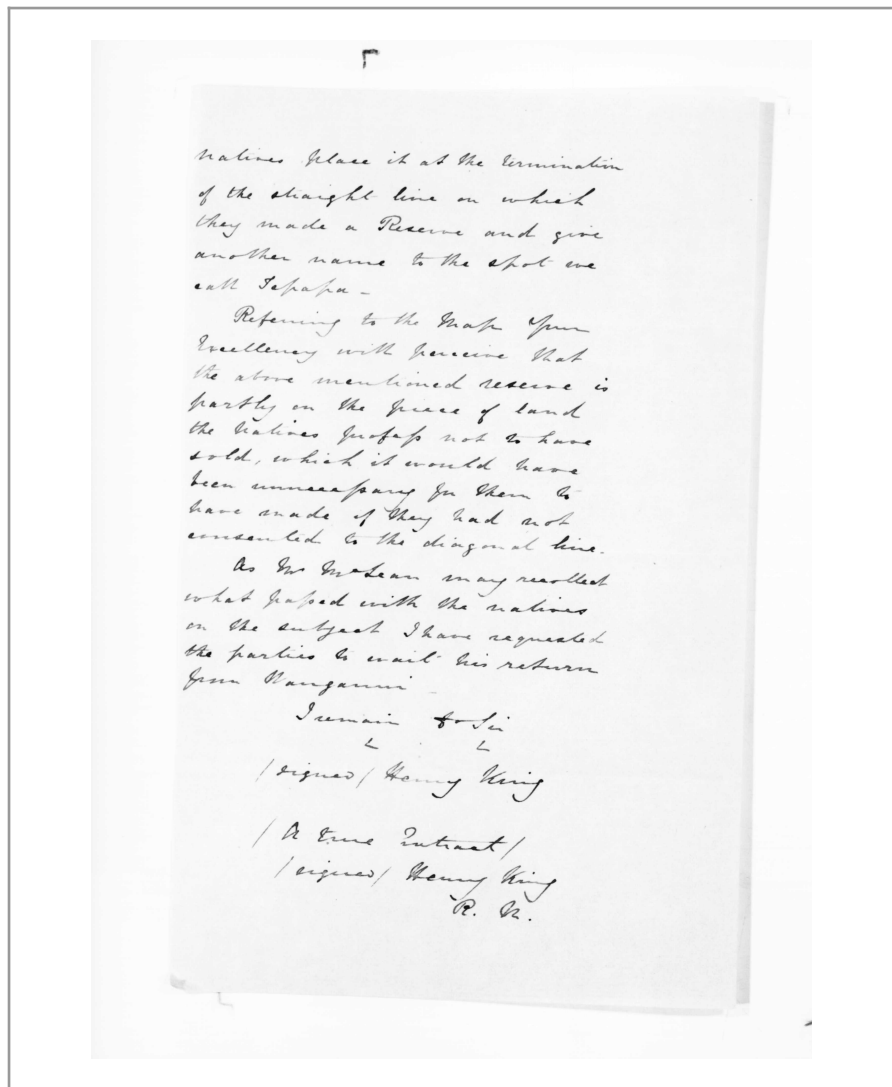 natives place it at the termination
of the straight line on which
they made a Reserve and give
another name to the spot we
call Tepapa -
Referring to the Map Your
Excellency will perceive that
the above mentioned reserve is
partly on the piece of land
the Natives profess not to have
sold, which it would have
been unnecessary for them to
have made if they had not
consented to the diagonal line.
As Mr McLean may recollect
what passed with the natives
on the subject I have requested
the parties to wait his return
from Wanganui -
I remain &c Sir
/signed/ Henry King
/A true Extract/
/signed/ Henry King
R. M.